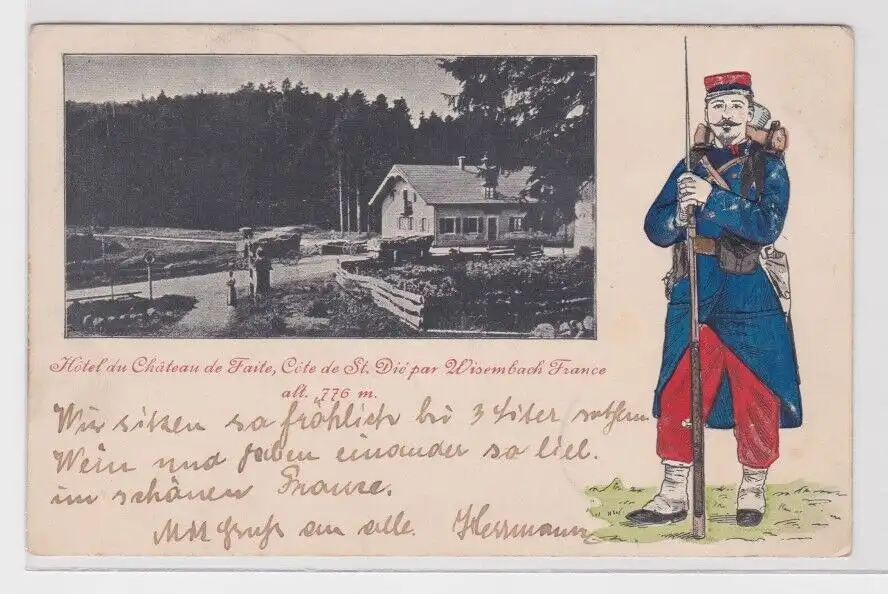 Hôtel du Château de Faite, Côte de St. Dié par Wisembach France
alt. 776 m.
Wir sitzen so fröhlich bei 3 Liter rothem
Wein und haben einander so lieb.
im schönen Franze.
Mit Gruß an alle. Herrmann